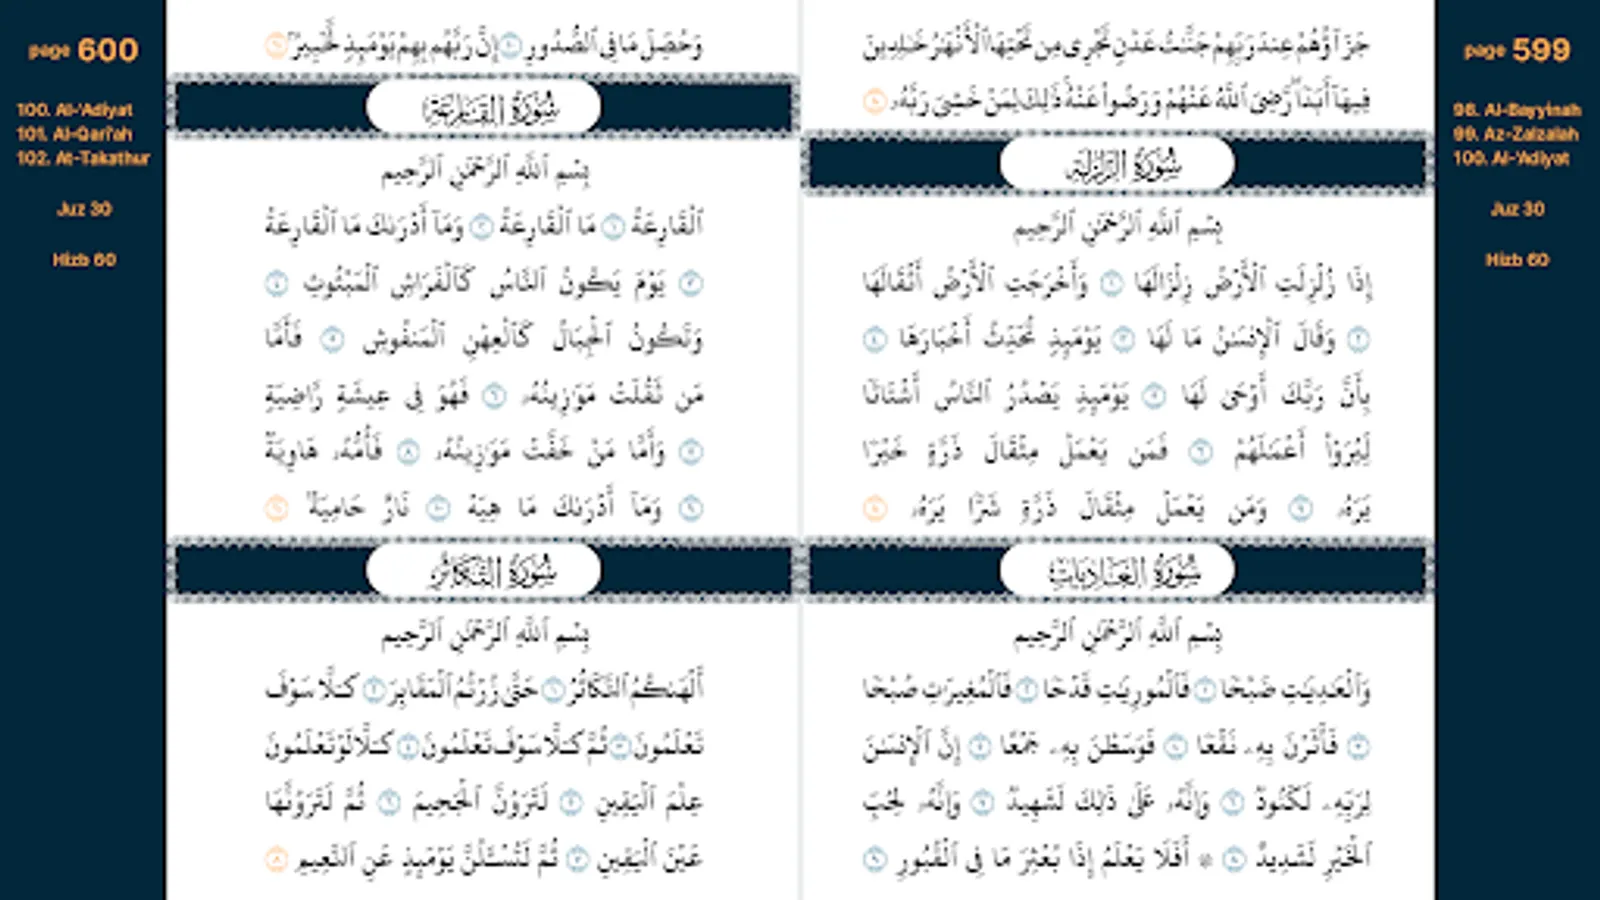 page 599
98. Al-Bayyinah
99. Az-Zalzalah
100. Al-'Adiyat
Juz 30
Hizb 60
جَزَآؤُهُمْ عِندَ رَبِّهِمْ جَنَّٰتُ عَدْنٍ تَجْرِى مِن تَحْتِهَا ٱلْأَنْهَٰرُ خَٰلِدِينَ
فِيهَآ أَبَدًا ۖ رَّضِىَ ٱللَّهُ عَنْهُمْ وَرَضُوا۟ عَنْهُ ۚ ذَٰلِكَ لِمَنْ خَشِىَ رَبَّهُۥ ٨
سُورَةُ الزَّلْزَلَةِ
بِسْمِ ٱللَّهِ ٱلرَّحْمَٰنِ ٱلرَّحِيمِ
إِذَا زُلْزِلَتِ ٱلْأَرْضُ زِلْزَالَهَا ١ وَأَخْرَجَتِ ٱلْأَرْضُ أَثْقَالَهَا
٢ وَقَالَ ٱلْإِنسَٰنُ مَا لَهَا ٣ يَوْمَئِذٍ تُحَدِّثُ أَخْبَارَهَا ٤
بِأَنَّ رَبَّكَ أَوْحَىٰ لَهَا ٥ يَوْمَئِذٍ يَصْدُرُ ٱلنَّاسُ أَشْتَاتًا
لِّيُرَوْا۟ أَعْمَٰلَهُمْ ٦ فَمَن يَعْمَلْ مِثْقَالَ ذَرَّةٍ خَيْرًا
يَرَهُۥ ٧ وَمَن يَعْمَلْ مِثْقَالَ ذَرَّةٍ شَرًّا يَرَهُۥ ٨
سُورَةُ العَادِيَاتِ
بِسْمِ ٱللَّهِ ٱلرَّحْمَٰنِ ٱلرَّحِيمِ
وَٱلْعَٰدِيَٰتِ ضَبْحًا ١ فَٱلْمُورِيَٰتِ قَدْحًا ٢ فَٱلْمُغِيرَٰتِ صُبْحًا
٣ فَأَثَرْنَ بِهِۦ نَقْعًا ٤ فَوَسَطْنَ بِهِۦ جَمْعًا ٥ إِنَّ ٱلْإِنسَٰنَ
لِرَبِّهِۦ لَكَنُودٌ ٦ وَإِنَّهُۥ عَلَىٰ ذَٰلِكَ لَشَهِيدٌ ٧ وَإِنَّهُۥ لِحُبِّ
ٱلْخَيْرِ لَشَدِيدٌ ٨ ۞ أَفَلَا يَعْلَمُ إِذَا بُعْثِرَ مَا فِى ٱلْقُبُورِ ٩
page 600
100. Al-'Adiyat
101. Al-Qari'ah
102. At-Takathur
Juz 30
Hizb 60
وَحُصِّلَ مَا فِى ٱلصُّدُورِ ١٠ إِنَّ رَبَّهُم بِهِمْ يَوْمَئِذٍ لَّخَبِيرٌۢ ١١
سُورَةُ القَارِعَةِ
بِسْمِ ٱللَّهِ ٱلرَّحْمَٰنِ ٱلرَّحِيمِ
ٱلْقَارِعَةُ ١ مَا ٱلْقَارِعَةُ ٢ وَمَآ أَدْرَىٰكَ مَا ٱلْقَارِعَةُ
٣ يَوْمَ يَكُونُ ٱلنَّاسُ كَٱلْفَرَاشِ ٱلْمَبْثُوثِ ٤
وَتَكُونُ ٱلْجِبَالُ كَٱلْعِهْنِ ٱلْمَنفُوشِ ٥ فَأَمَّا
مَن ثَقُلَتْ مَوَٰزِينُهُۥ ٦ فَهُوَ فِى عِيشَةٍ رَّاضِيَةٍ
٧ وَأَمَّا مَنْ خَفَّتْ مَوَٰزِينُهُۥ ٨ فَأُمُّهُۥ هَاوِيَةٌ
٩ وَمَآ أَدْرَىٰكَ مَا هِيَهْ ١٠ نَارٌ حَامِيَةٌۢ ١١
سُورَةُ التَّكَاثُرِ
بِسْمِ ٱللَّهِ ٱلرَّحْمَٰنِ ٱلرَّحِيمِ
أَلْهَىٰكُمُ ٱلتَّكَاثُرُ ١ حَتَّىٰ زُرْتُمُ ٱلْمَقَابِرَ ٢ كَلَّا سَوْفَ
تَعْلَمُونَ ٣ ثُمَّ كَلَّا سَوْفَ تَعْلَمُونَ ٤ كَلَّا لَوْ تَعْلَمُونَ
عِلْمَ ٱلْيَقِينِ ٥ لَتَرَوُنَّ ٱلْجَحِيمَ ٦ ثُمَّ لَتَرَوُنَّهَا
عَيْنَ ٱلْيَقِينِ ٧ ثُمَّ لَتُسْـَٔلُنَّ يَوْمَئِذٍ عَنِ ٱلنَّعِيمِ ٨